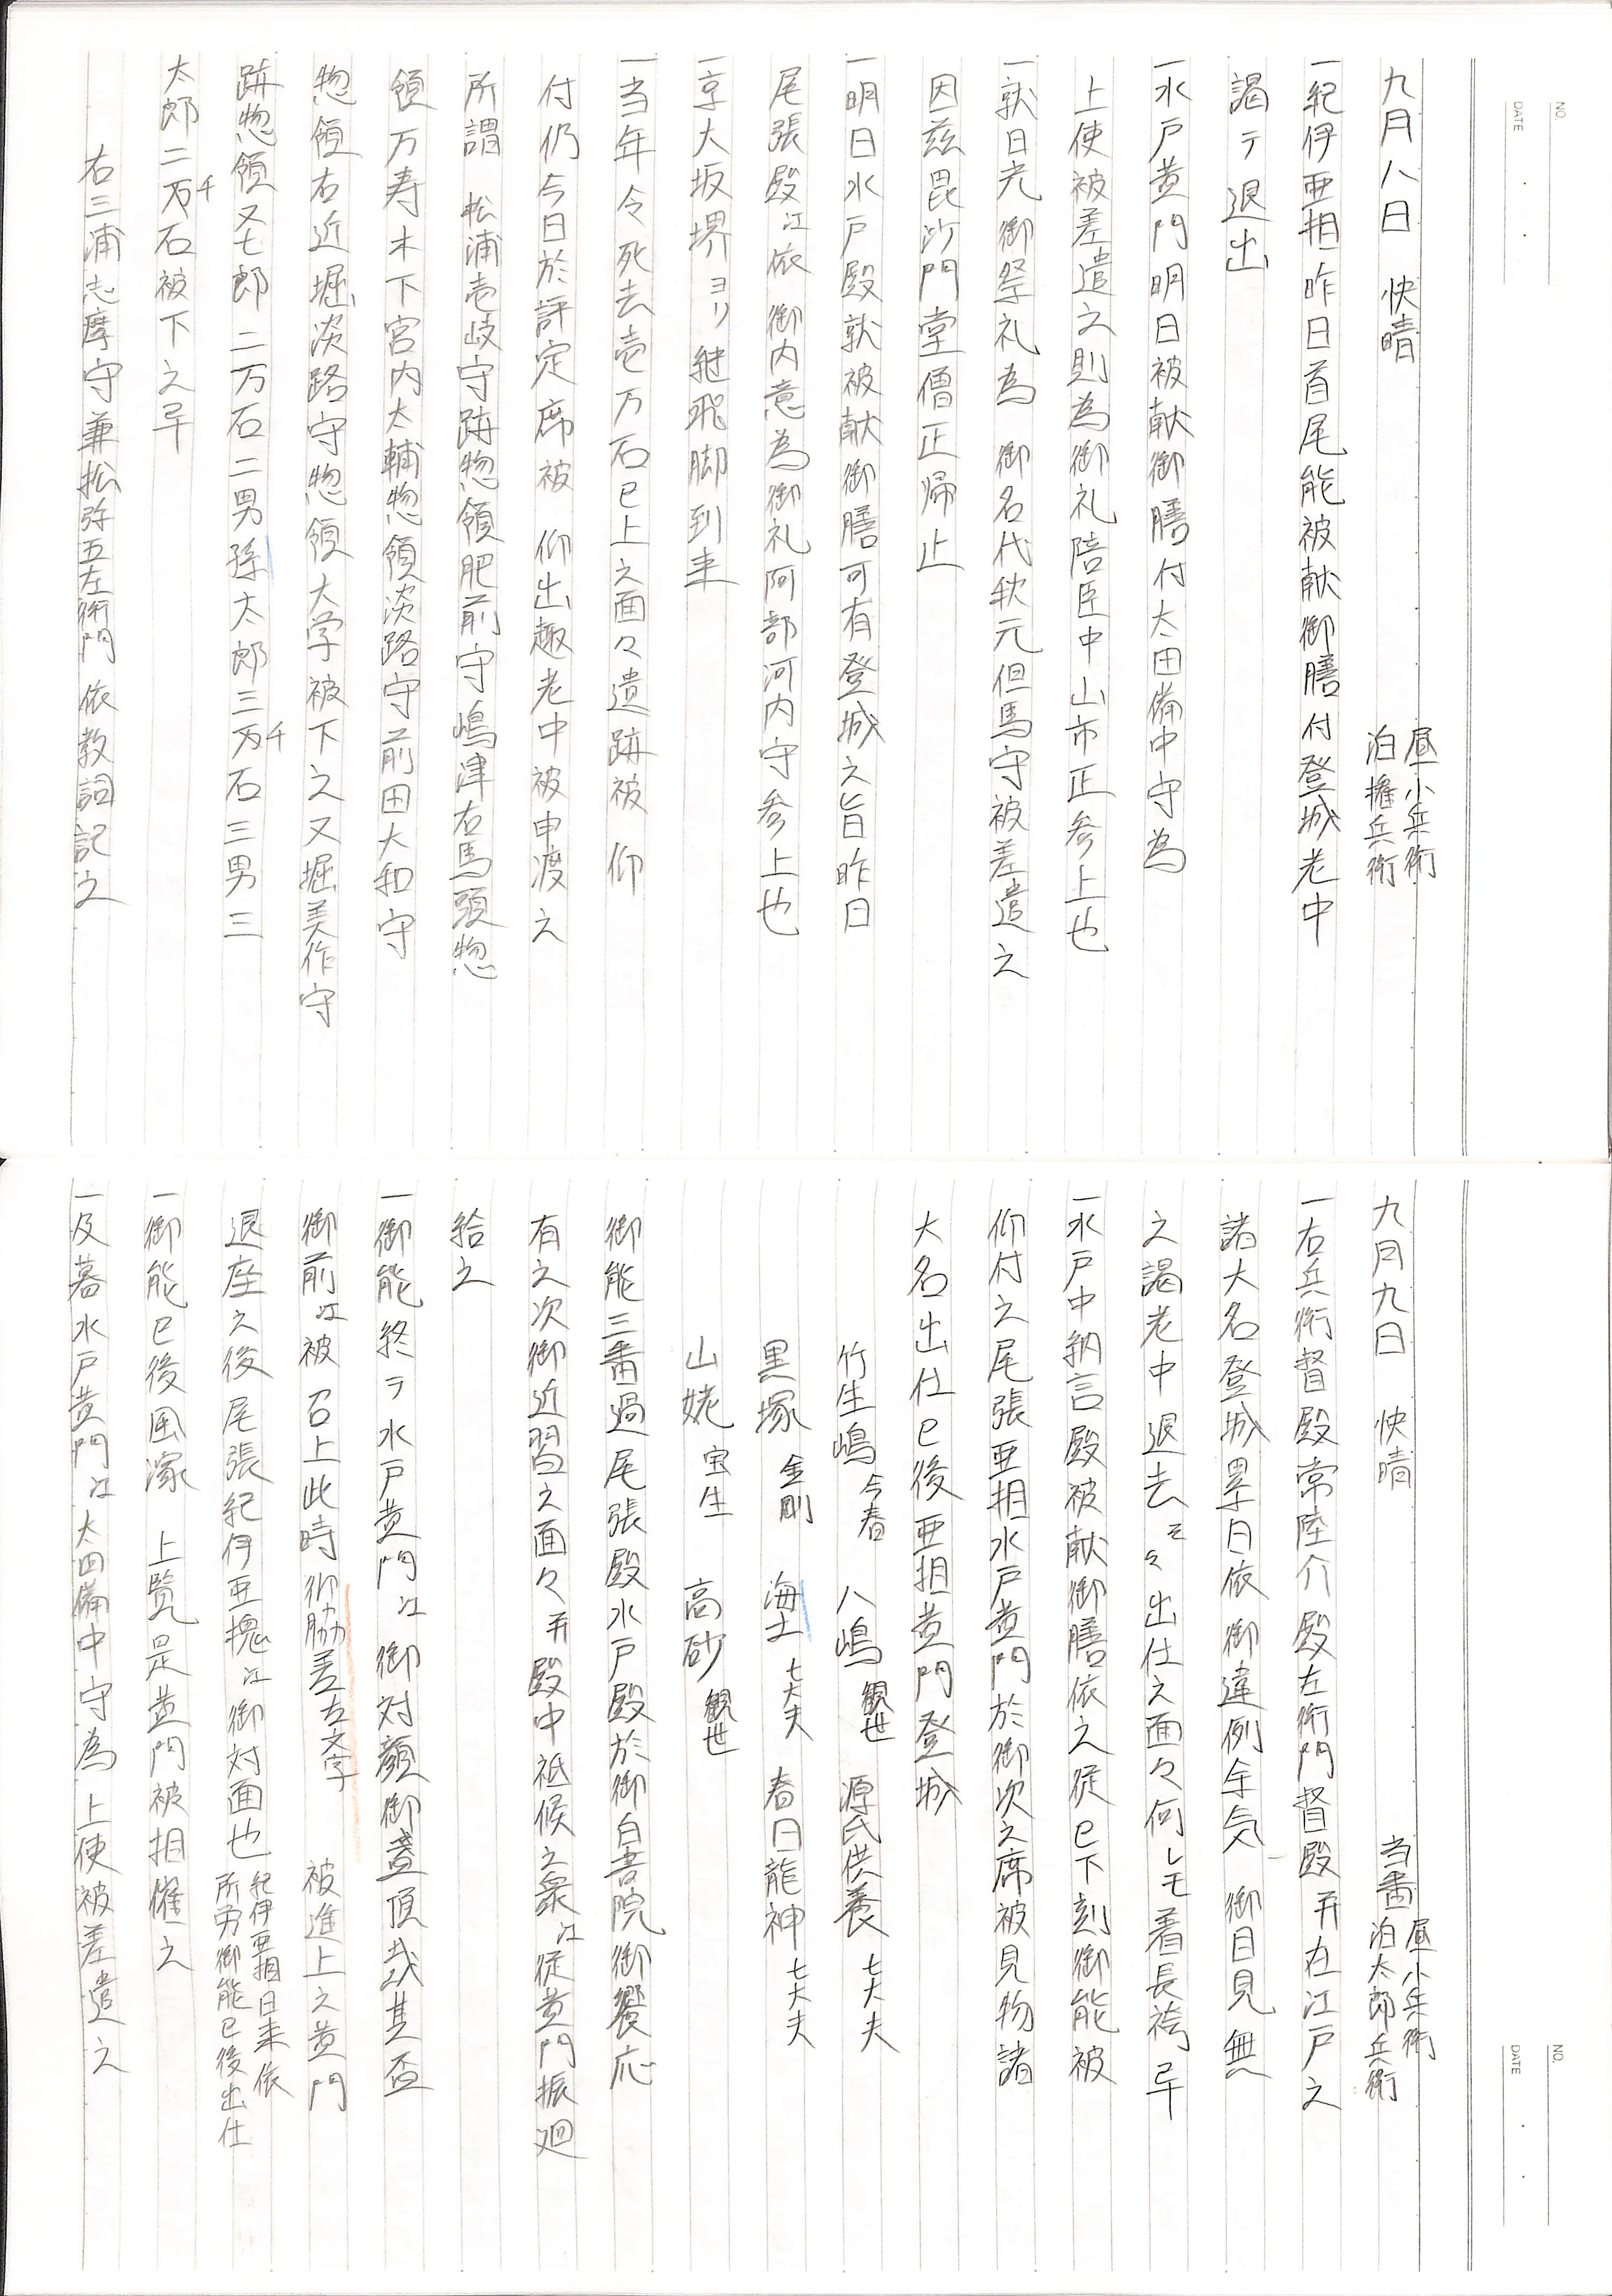 NO.
DATE
九月八日　快晴
昼小兵衛
泊擁兵衛
一紀伊亜相昨日首尾能被献御膳付登城老中
謁テ退出
一水戸黄門明日被献御膳付太田備中守為
上使被差遣之則為御礼陪臣中山市正参上也
一就日光御祭礼為　御名代秋元但馬守被差遣之
因茲毘沙門堂僧正帰止
一明日水戸殿就被献御膳可有登城之旨昨日
尾張殿江依　御内意為御礼阿部河内守参上也
一京大坂堺ヨリ継飛脚到来
一当年令死去壱万石已上之面々遺跡被　仰
付仍今日於評定席被　仰出趣老中被申渡之
所謂　松浦壱岐守跡惣領肥前守嶋津右馬頭惣
領万寿木下宮内太輔惣領淡路守前田大和守
惣領右近堀淡路守惣領大学被下之又堀美作守
跡惣領又七郎二万石二男孫太郎三万千石三男三
太郎二万千石被下之早
右三浦志摩守兼松弥五左衛門依教詞記之
NO.
DATE
九月九日　快晴
当番
昼小兵衛
泊太郎兵衛
一右兵衛督殿常陸介殿左衛門督殿并在江戸之
諸大名登城畢日依御違例余気　御目見無
之謁老中退去云々出仕之面々何レモ着長袴早
一水戸中納言殿被献御膳依之従巳下刻御能被
仰付之尾張亜相水戸黄門於御次之席被見物諸
大名出仕已後亜相黄門登城
竹生嶋　今春　八嶋　観世　源氏供養　七大夫
黒塚　金剛　海士　七大夫　春日龍神　七大夫
山姥　宝生　高砂　観世
御能三番過尾張殿水戸殿於御白書院御饗応
有之次御近習之面々并殿中祗候之衆江従黄門振廻
給之
一御能終テ水戸黄門江　御対顔御盞頂戴其盃
御前江被　召上此時御脇差左文字　被進上之黄門
退座之後尾張紀伊亜槐江御対面也
紀伊亜相日来依
所労御能已後出仕
一御能已後風流　上覧是黄門被相催之
一及暮水戸黄門江太田備中守為　上使被差遣之